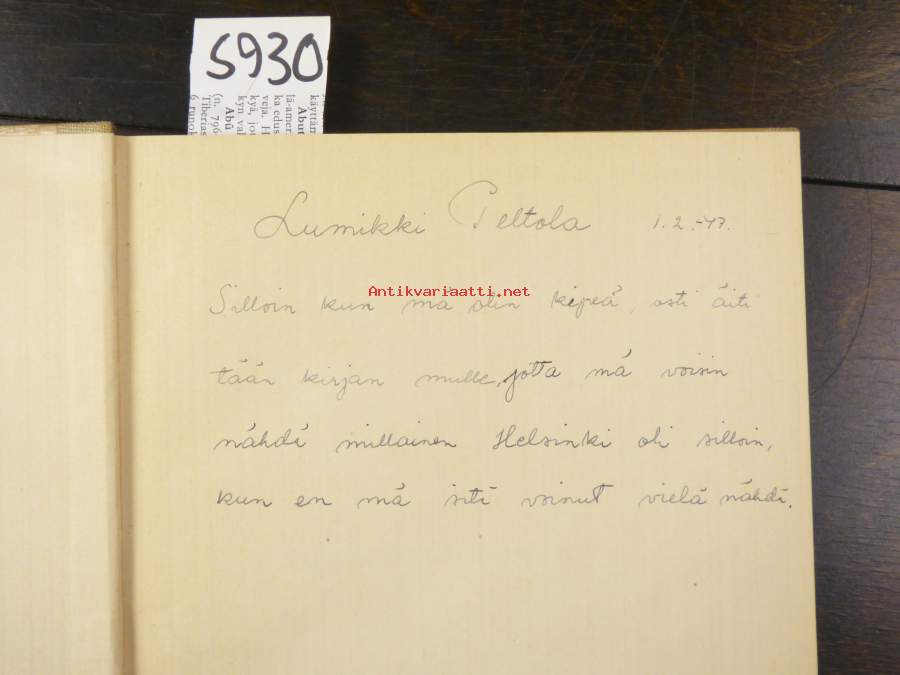 5930
käyttän
Abut
tä-amer
ka edus
veja. H
kyä, jol
kyn val
Abū
(n. 796
Tiberias
Lumikki Peltola 1.2.-47.
Antikvariaatti.net
Silloin kun mä olin kipeä, osti äiti
tään kirjan mulle, jotta mä voisin
nähdä millainen Helsinki oli silloin,
kun en mä sitä voinut vielä nähdä.